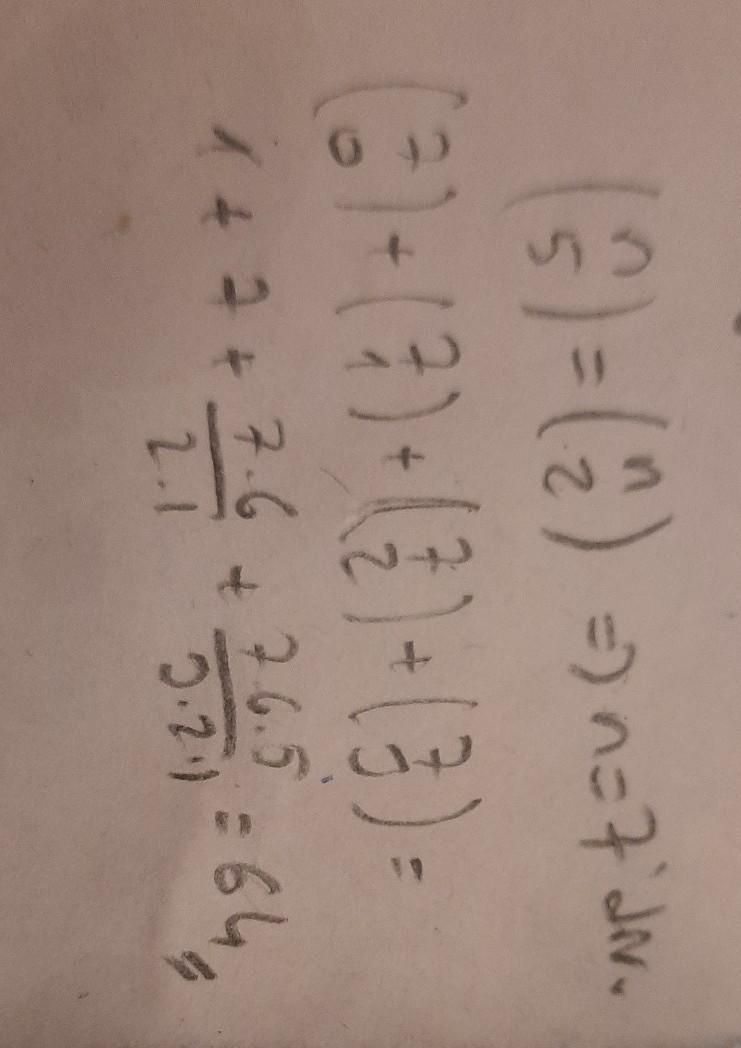 (n 5) = (n 2) => n=7'dir.
(7 0) + (7 1) + (7 2) + (7 3) =
1 + 7 + 7.6/2.1 + 7.6.5/3.2.1 = 64